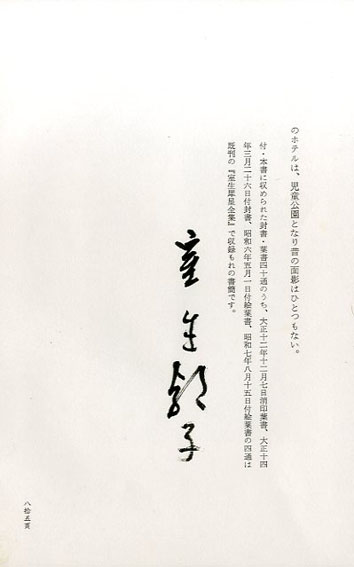 のホテルは、児童公園となり昔の面影はひとつもない。
付・本書に収められた封書・葉書四十通のうち、大正十二年十二月七日消印葉書、大正十四
年三月二十六日付封書、昭和六年五月一日付絵葉書、昭和七年八月十五日付絵葉書の四通は
既刊の『室生犀星全集』で収録もれの書簡です。
室生朝子
八拾五頁